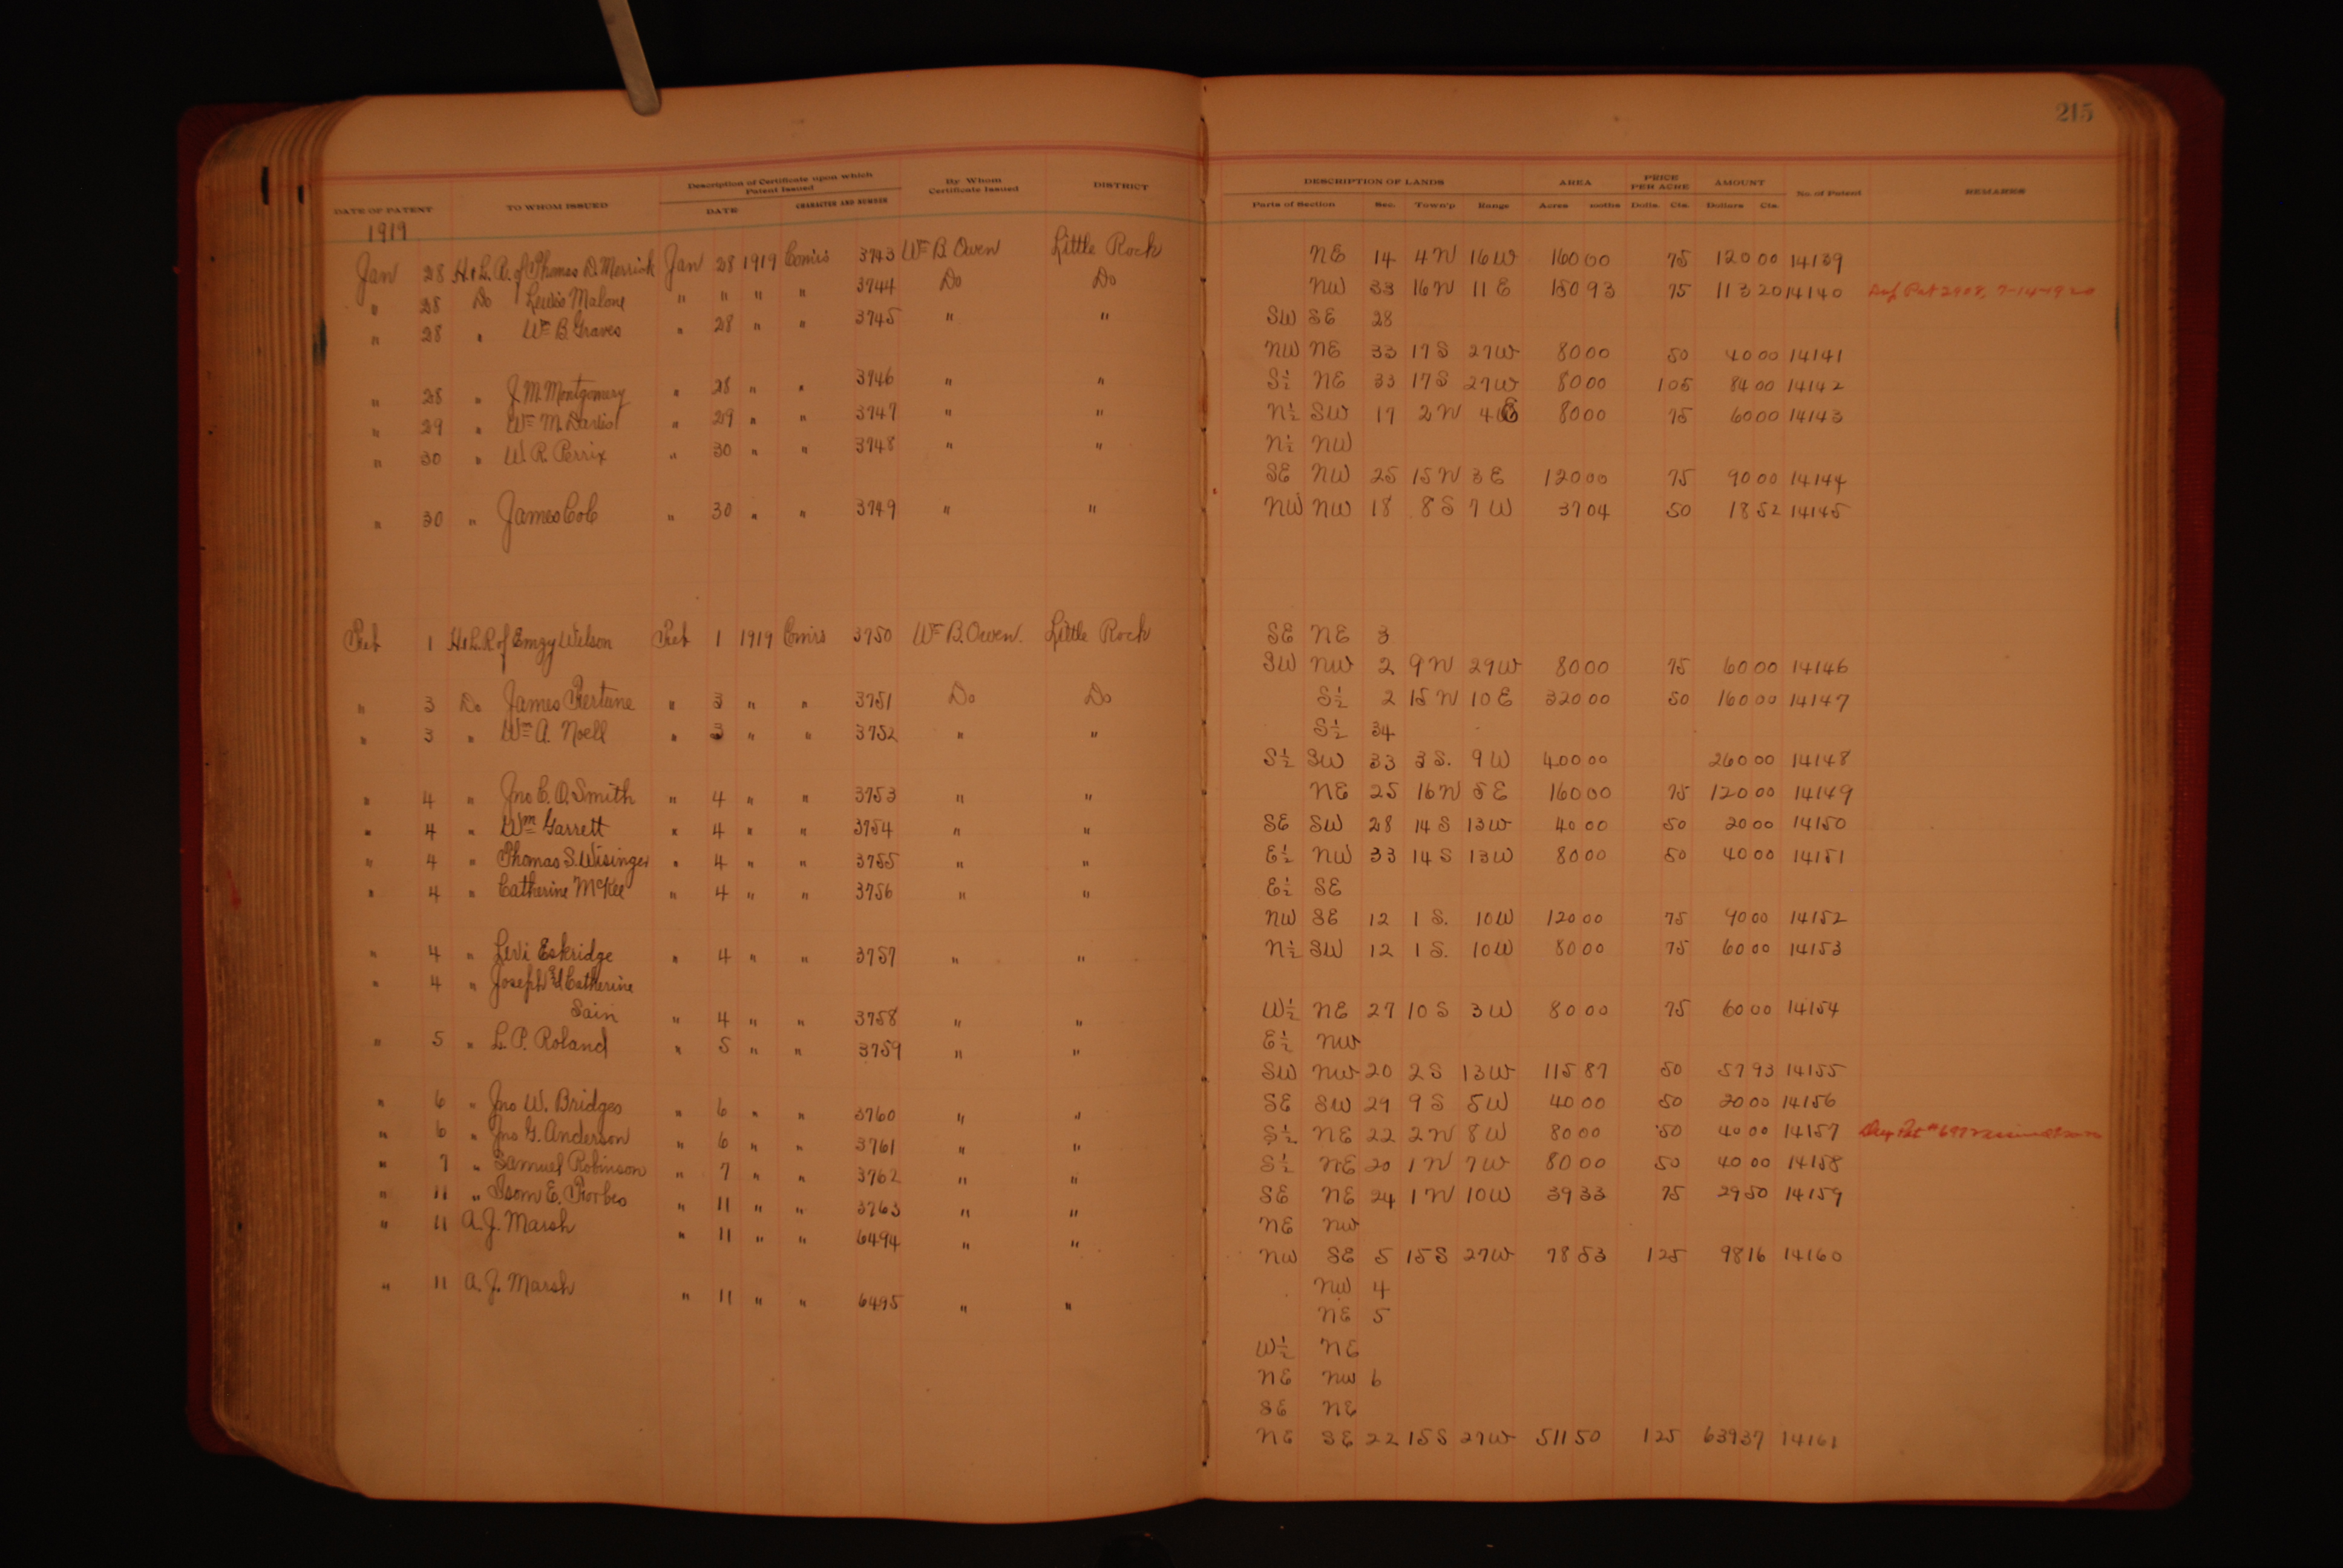 215
DATE OF PATENT TO WHOM ISSUED Description of Certificate upon which Patent Issued DATE CHARACTER AND NUMBER By Whom Certificate Issued DISTRICT DESCRIPTION OF LANDS Parts of Section Sec. Town'p Range AREA Acres PRICE PER ACRE Dolls. Cts. AMOUNT Dollars Cts. No. of Patent REMARKS
1919
Jan 28 H & L. R. of Thomas D. Merrick Jan 28 1919 Comrs 3743 Wm B. Owen Little Rock NE 14 4N 16W 160 00 75 120 00 14139
" 28 Do Lewis Malone " " " " 3744 Do Do NW 33 16N 11E 150 93 75 113 20 14140
" 28 " Wm B. Graves " 28 " " 3745 " " SW SE 28
NW NE 33 17S 27W 80 00 50 40 00 14141
" 28 " J. M. Montgomery " 28 " " 3746 " " S½ NE 33 17S 27W 80 00 1 05 84 00 14142
" 29 " Wm M. " 29 " " 3747 " " N½ SW 17 2N 4E 80 00 75 60 00 14143
" 30 " W. R. Perrix " 30 " " 3748 " " N½ NW
SE NW 25 15N 3E 120 00 75 90 00 14144
" 30 " James Cole " 30 " " 3749 " " NW NW 18 8S 7W 37 04 50 18 52 14145
Feb 1 H & L. R of Emzy Wilson Feb 1 1919 Comrs 3750 Wm B. Owen. Little Rock SE NE 3
SW NW 2 9N 29W 80 00 75 60 00 14146
" 3 Do James " 3 " " 3751 Do Do S½ 2 15N 10E 320 00 50 160 00 14147
" 3 " Wm A. Noell " 3 " " 3752 " " S½ 34
S½ SW 33 3S. 9W 400 00 260 00 14148
" 4 " Jno C. O. Smith " 4 " " 3753 " " NE 25 16N 5E 160 00 75 120 00 14149
" 4 " Wm Garrett " 4 " " 3754 " " SE SW 28 14S 13W 40 00 50 20 00 14150
" 4 " Thomas S. Wisinger " 4 " " 3755 " " E½ NW 33 14S 13W 80 00 50 40 00 14151
" 4 " Catherine McKee " 4 " " 3756 " " E½ SE
NW SE 12 1S. 10W 120 00 75 90 00 14152
" 4 " Levi Eskridge " 4 " " 3757 " " N½ SW 12 1S. 10W 80 00 75 60 00 14153
" 4 " Joseph & Catherine
Sain " 4 " " 3758 " " W½ NE 27 10S 3W 80 00 75 60 00 14154
" 5 " L. P. Roland " 5 " " 3759 " " E½ NW
SW NW 20 2S 13W 115 87 50 57 93 14155
" 6 " Jno W. Bridges " 6 " " 3760 " " SE SW 29 9S 5W 40 00 50 20 00 14156
" 6 " Jno G. Anderson " 6 " " 3761 " " S½ NE 22 2N 8W 80 00 50 40 00 14157
" 7 " Samuel Robinson " 7 " " 3762 " " S½ NE 20 1N 7W 80 00 50 40 00 14158
" 11 " Isom E. Forbes " 11 " " 3763 " " SE NE 24 1N 10W 39 33 75 29 50 14159
" 11 A. J. Marsh " 11 " " 6494 " " NE NW
NW SE 5 15S 27W 78 53 1 25 98 16 14160
" 11 A. J. Marsh " 11 " " 6495 " " NW 4
NE 5
W½ NE
NE NW 6
SE NE
NE SE 22 15S 27W 511 50 1 25 639 37 14161